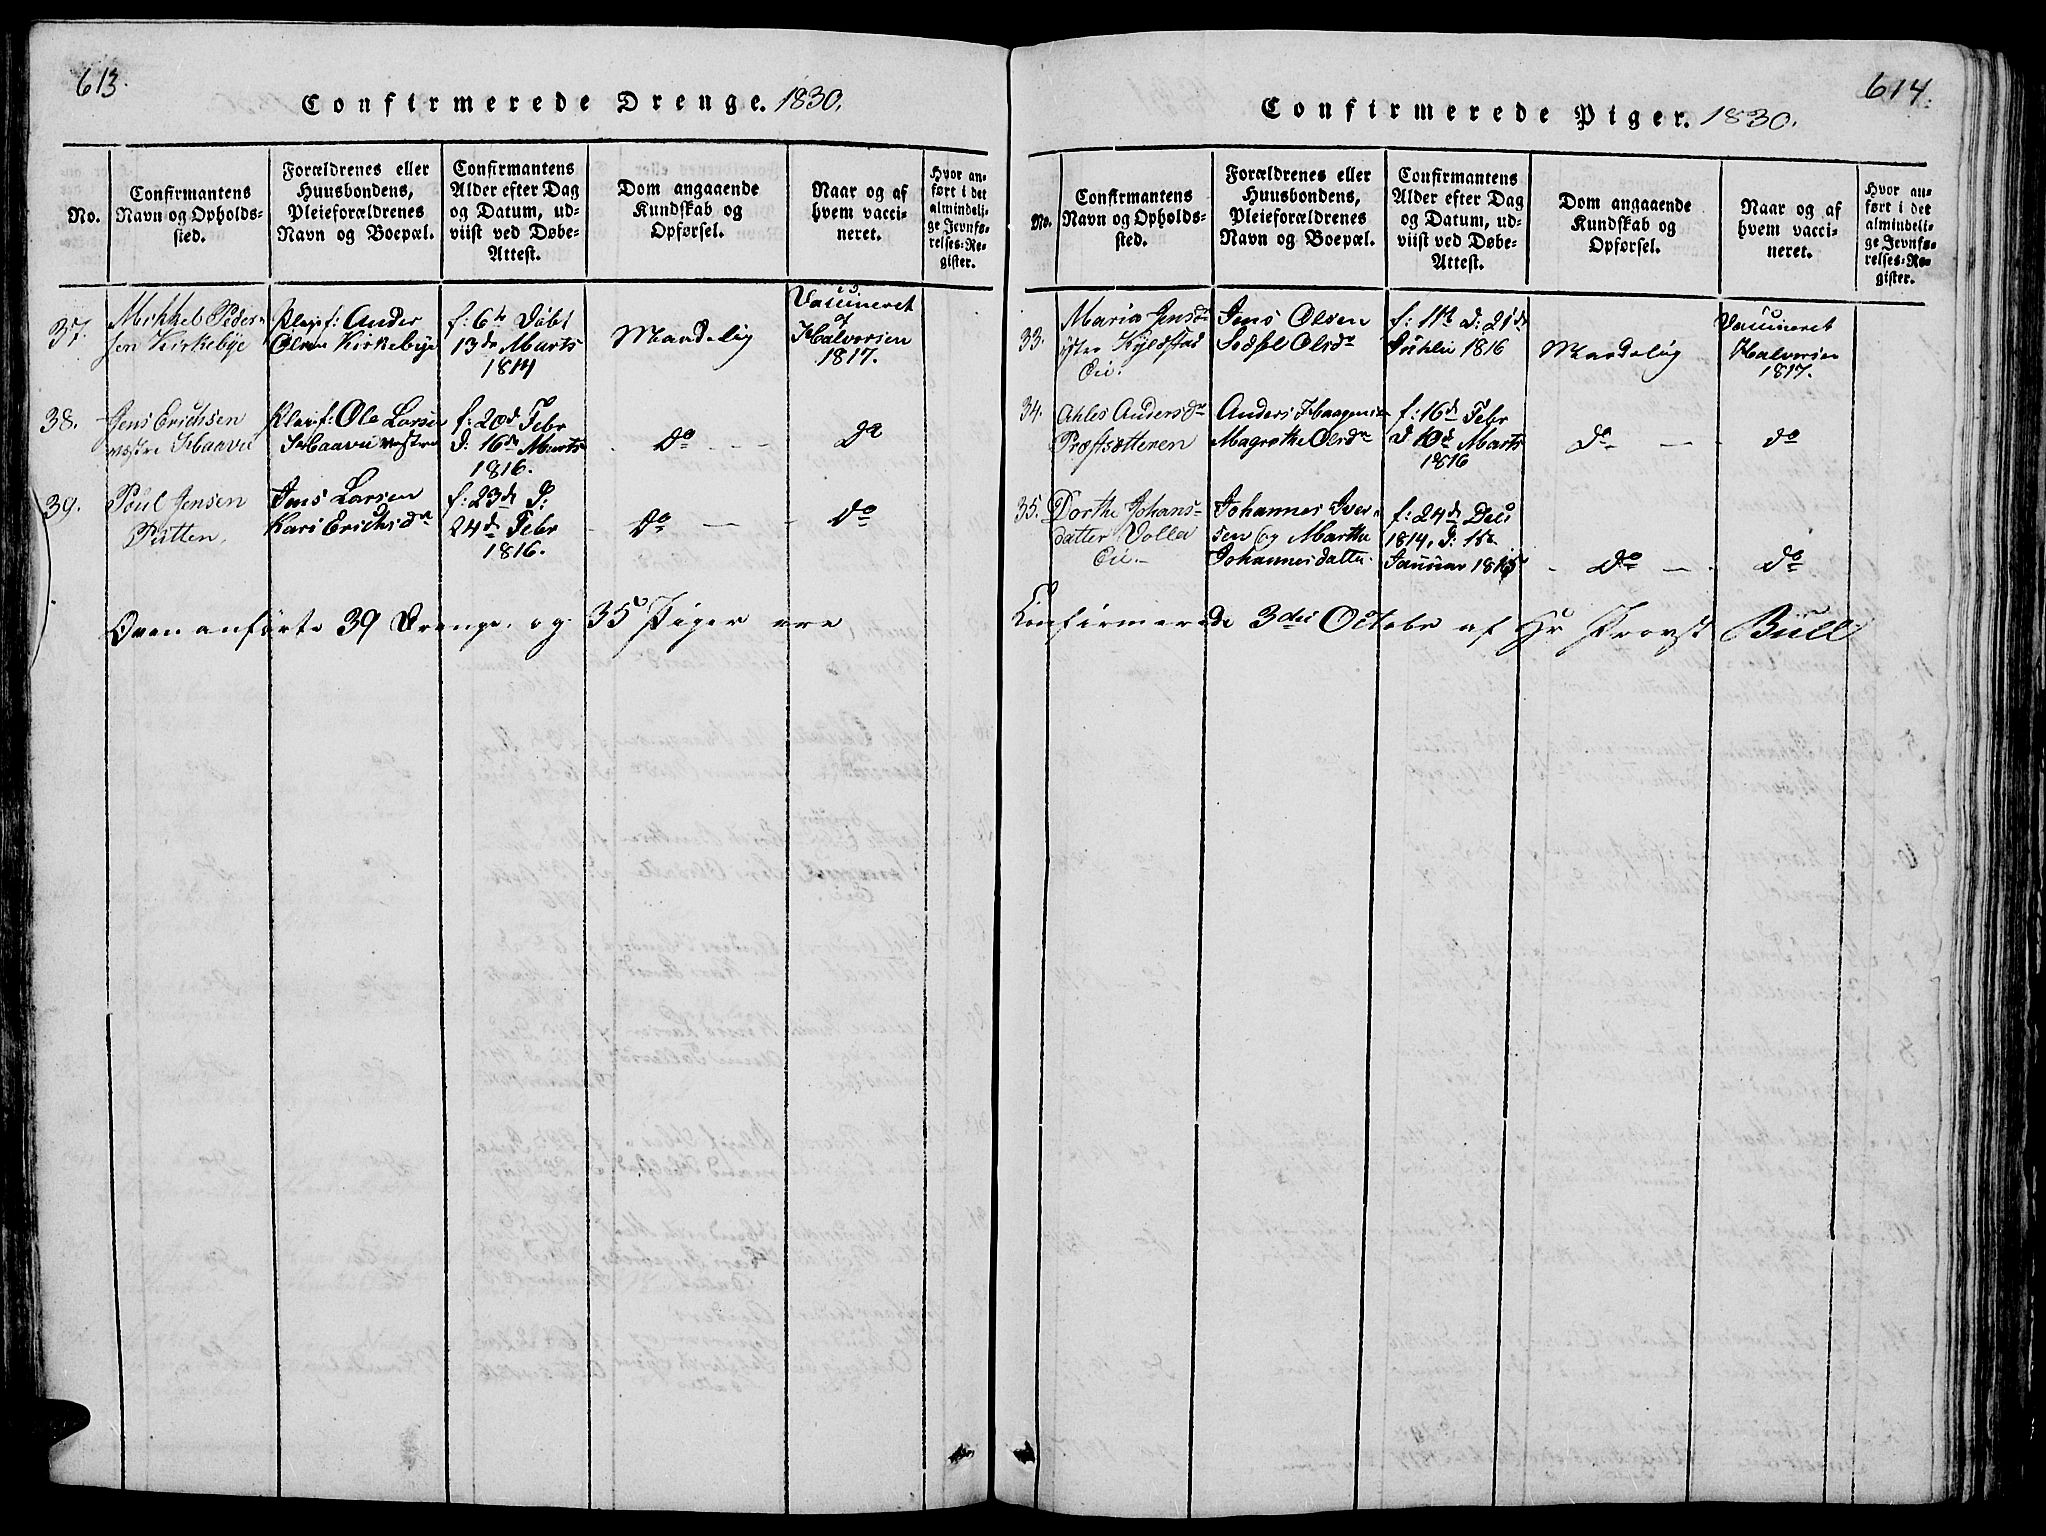 613.
Confirmerede Drenge. 1830.
No.
Confirmantens
Navn og Opholds-
sted.
Forældrenes eller
Huusbondens,
Pleieforældrenes
Navn og Boepæl.
Confirmantens
Alder efter Dag
og Datum, ud-
viist ved Døbe-
Attest.
Dom angaaende
Kundskab og
Opførsel.
Naar og af
hvem vacci-
neret.
Hvor an-
ført i det
almindeli-
ge Jevnfø-
relses-Re-
gister.
37.
Mikkel Peder-
sen Kirkebye
Pleief: Ander
Olsen Kirkebye
f: 6te Døbt
13de Marts
1814
Maadelig
Vaccineret
af
Halvorsen
1817.
38.
Jens Erichsen
vestre Haavie
Pleief: Ole Larsen
Haavie vestre
f: 20de Febr
D: 16de Marts
1816.
Do
Do
39.
Poul Jensen
Putten,
Jens Larsen
Kari Erichsdr
f: 23de D:
24de Febr
1816.
Do
Do
Ovenanførte 39 Drenge, og 35 Piger ere
614.
Confirmerede Piger. 1830.
No.
Confirmantens
Navn og Opholds-
sted.
Forældrenes eller
Huusbondens,
Pleieforældrenes
Navn og Boepæl.
Confirmantens
Alder efter Dag
og Datum, ud-
viist ved Døbe-
Attest.
Dom angaaende
Kundskab og
Opførsel.
Naar og af
hvem vacci-
neret.
Hvor an-
ført i det
almindeli-
ge Jevnfø-
relses-Re-
gister.
33.
Maria Jensd-
Eie.
Jens Olsen
Sidsel Olsdr
f: 11te D: 21de
1816
Maadelig
Vaccineret
Halvorsen
1817.
34.
Ahles Andersdr
Anders Haagensen
Magrethe Olsdr
f: 16de Febr
D 10de Marts
1816
Do
do
35.
Dorthe Johans-
datter Volla
Eie.
Johannes Iver-
sen og Marthe
Johannesdatter
f: 24de Dec
1814, D: 15de
Januar 1815
Do
Do
Confirmerede 3die Octobr af Hr Provst Bull